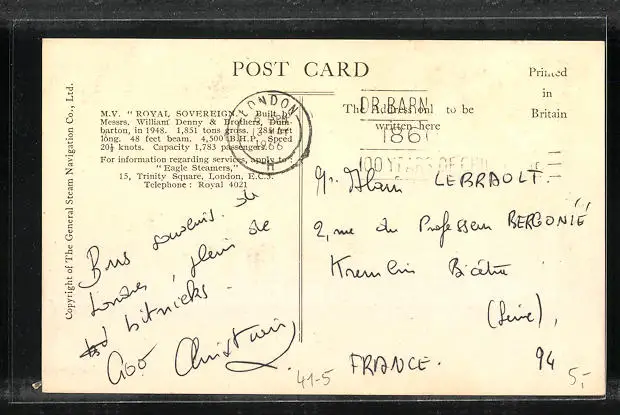 POST CARD
Printed
in
Britain
M.V. "ROYAL SOVEREIGN." Built by
Messrs. William Denny & Brothers, Dum-
barton, in 1948. 1,851 tons gross. 285 feet
long. 48 feet beam. 4,500 B.H.P. Speed
20½ knots. Capacity 1,783 passengers.
For information regarding services, apply to:
"Eagle Steamers,"
15, Trinity Square, London, E.C.3.
Telephone: Royal 4021
Copyright of The General Steam Navigation Co., Ltd.
LONDON
1966
H
The Address only to be
written here
DR BARN
1866
100 YEARS OF
Mr. Alain LEBRAULT.
2, rue du Professeur BERGONIÉ
Kremlin Bicêtre
(Seine),
94
FRANCE.
Bons souvenirs de
Londres, plein de
bitnicks.
Christian
41-5
5,-